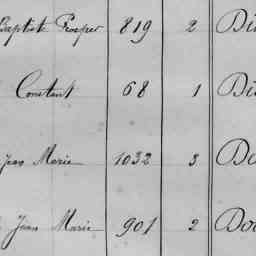 Baptiste Prosper 819 2 Di
Constant 68 1 Di
Jean Marie 1032 3 Do
Jean Marie 901 2 Do